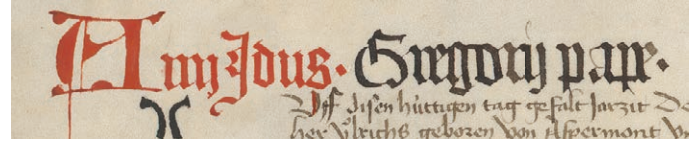 A iiij Idus. Gregorij pape.
Uff disen hüttigen tag gefalt Jarzit
her Ulrichs geboren von Aspermont